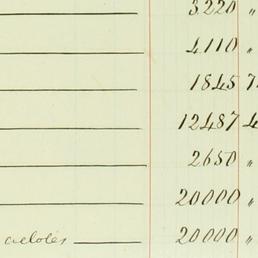 3220 "
4110 "
1845 7
12487 4
2650 "
20000 "
20000 "